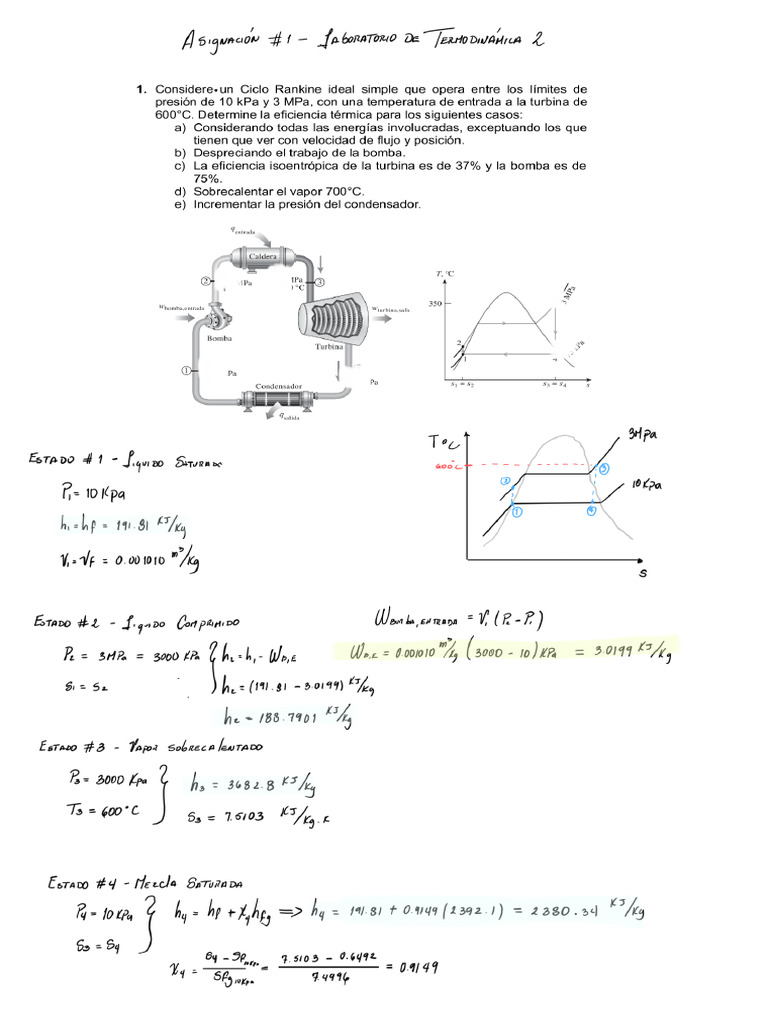 ASIGNACIÓN #1 - LABORATORIO DE TERMODINÁMICA 2
1. Considere un Ciclo Rankine ideal simple que opera entre los límites de
presión de 10 kPa y 3 MPa, con una temperatura de entrada a la turbina de
600°C. Determine la eficiencia térmica para los siguientes casos:
a) Considerando todas las energías involucradas, exceptuando los que
tienen que ver con velocidad de flujo y posición.
b) Despreciando el trabajo de la bomba.
c) La eficiencia isoentrópica de la turbina es de 37% y la bomba es de
75%.
d) Sobrecalentar el vapor 700°C.
e) Incrementar la presión del condensador.
q entrada
Caldera
2
Pa
1Pa
°C
3
w bomba,entrada
Bomba
w turbina,salida
Turbina
1
Pa
Pa
Condensador
q salida
T, °C
350
3 MPa
kPa
2
1
s1 = s2
s3 = s4
s
T °C
600°C
3MPa
10 KPa
1
2
3
4
S
ESTADO #1 - LÍQUIDO SATURADO
P1 = 10 Kpa
h1 = hf = 191.81 KJ/Kg
V1 = Vf = 0.001010 m³/Kg
ESTADO #2 - LÍQUIDO COMPRIMIDO
P2 = 3MPa = 3000 KPa
S1 = S2
h2 = h1 - WB,E
h2 = (191.81 - 3.0199) KJ/Kg
h2 = 188.7901 KJ/Kg
W BOMBA, ENTRADA = V1 (P2 - P1)
WB,E = 0.001010 m³/Kg (3000 - 10) KPa = 3.0199 KJ/Kg
ESTADO #3 - VAPOR SOBRECALENTADO
P3 = 3000 Kpa
T3 = 600°C
h3 = 3682.8 KJ/Kg
S3 = 7.5103 KJ/Kg.K
ESTADO #4 - MEZCLA SATURADA
P4 = 10 KPa
S3 = S4
h4 = hf + X4 hfg => h4 = 191.81 + 0.9149 (2392.1) = 2380.34 KJ/Kg
X4 = S4 - Sf10KPa / Sfg10KPa = 7.5103 - 0.6492 / 7.4996 = 0.9149